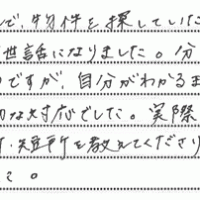 で、物件を探していた
世話になりました。分
ですが、自分がわかるま
切な対応でした。実際
・短所を教えてくださり
。